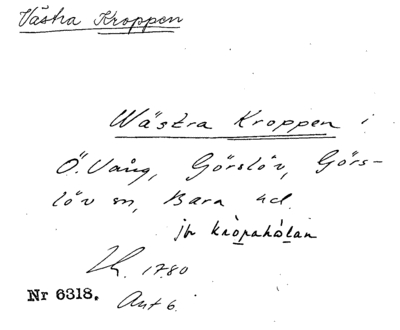 Västra Kroppen
Wästra Kroppen i
Ö. Vång, Görslöv, Görs-
löv sn, Bara hd.
jfr kròpahȯlan
Lk. 1780
Nr 6318. Akt 6.